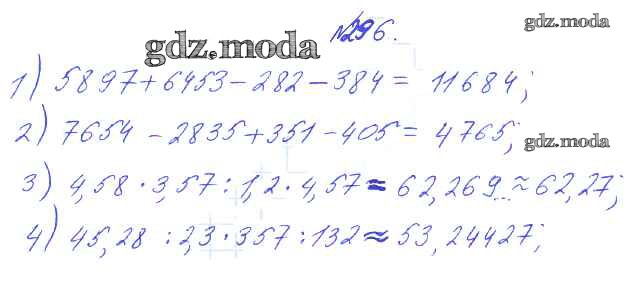 gdz.moda
№296.
gdz.moda
1) 5897+6453-282-384= 11684;
2) 7654 -2835+351-405= 4765;
gdz.moda
3) 4,58·3,57:1,2·4,57≈62,269...≈62,27;
4) 45,28 :2,3·357:132≈53,24427;